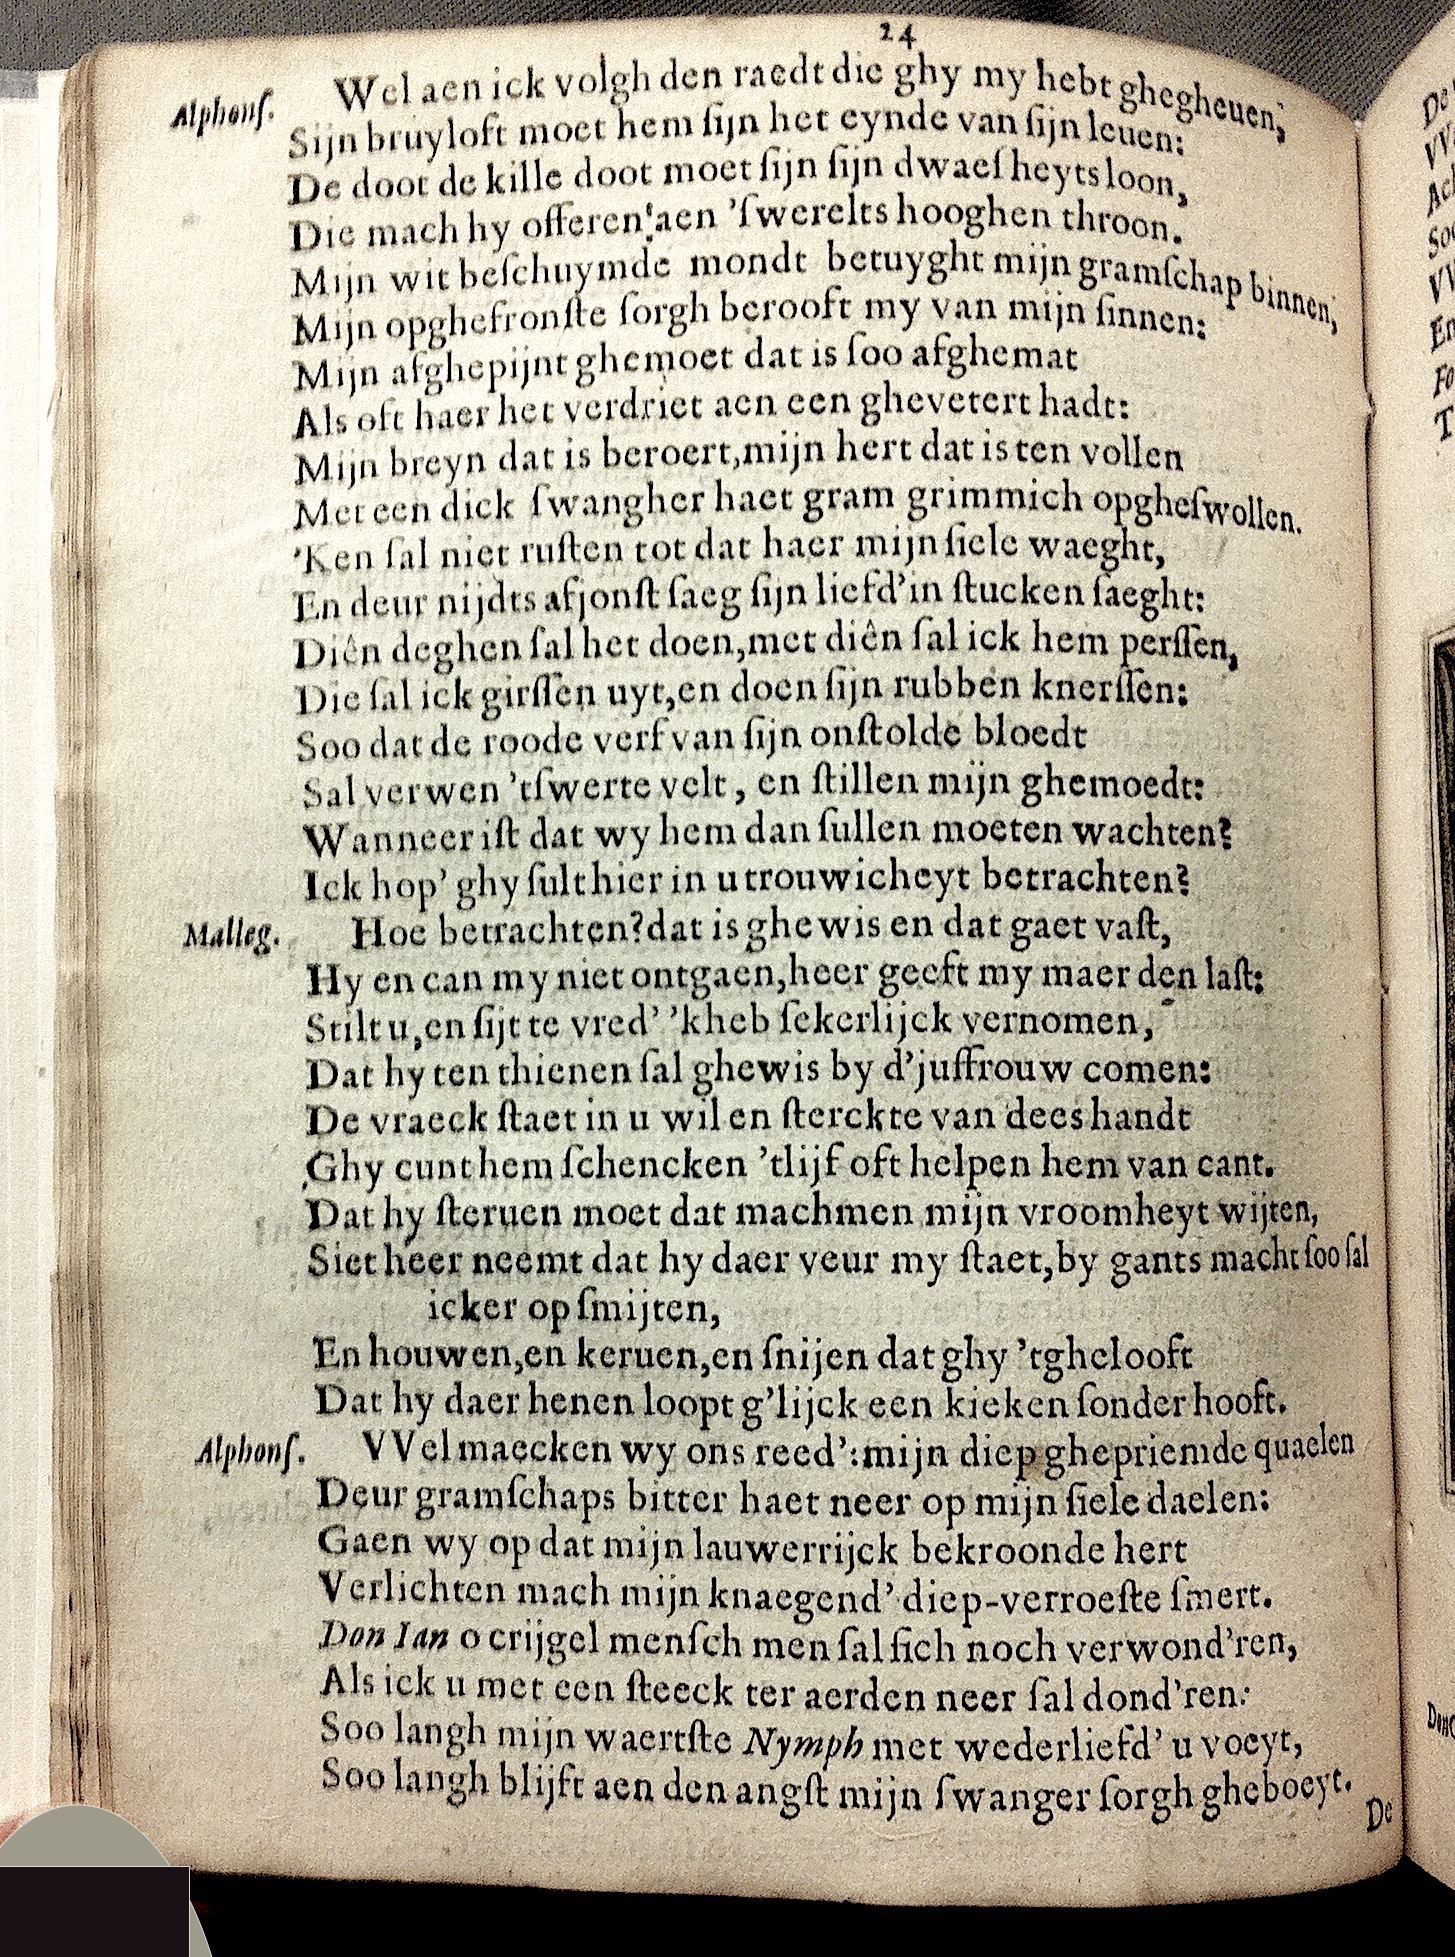 24
Alphonſ. Wel aen ick volgh den raedt die ghy my hebt ghegheuen;
Sijn bruyloft moet hem ſijn het eynde van ſijn leuen:
De doot de kille doot moet ſijn ſijn dwaeſheyts loon,
Die mach hy offeren aen 'ſwerelts hooghen throon.
Mijn wit beſchuymde mondt betuyght mijn gramſchap binnen;
Mijn opghefronſte ſorgh berooft my van mijn ſinnen:
Mijn afghepijnt ghemoet dat is ſoo afghemat
Als oft haer het verdriet aen een ghevetert hadt:
Mijn breyn dat is beroert, mijn hert dat is ten vollen
Met een dick ſwangher haet gram grimmich opgheſwollen.
'Ken ſal niet ruſten tot dat haer mijn ſiele waeght,
En deur nijdts afjonſt ſaeg ſijn liefd' in ſtucken ſaeght:
Diên deghen ſal het doen, met diên ſal ick hem perſſen,
Die ſal ick girſſen uyt, en doen ſijn rubben knerſſen:
Soo dat de roode verf van ſijn onſtolde bloedt
Sal verwen 'tſwerte velt, en ſtillen mijn ghemoedt:
Wanneer iſt dat wy hem dan ſullen moeten wachten?
Ick hop' ghy ſult hier in u trouwicheyt betrachten?
Malleg. Hoe betrachten? dat is ghewis en dat gaet vaſt,
Hy en can my niet ontgaen, heer geeft my maer den laſt:
Stilt u, en ſijt te vred' 'kheb ſekerlijck vernomen,
Dat hy ten thienen ſal ghewis by d'juffrouw comen:
De vraeck ſtaet in u wil en ſterckte van dees handt
Ghy cunt hem ſchencken 'tlijf oft helpen hem van cant.
Dat hy ſteruen moet dat machmen mijn vroomheyt wijten,
Siet heer neemt dat hy daer veur my ſtaet, by gants macht ſoo ſal
icker op ſmijten,
En houwen, en keruen, en ſnijen dat ghy 'tghelooft
Dat hy daer henen loopt g'lijck een kieken ſonder hooft.
Alphonſ. VVel maecken wy ons reed': mijn diep ghepriemde quaelen
Deur gramſchaps bitter haet neer op mijn ſiele daelen:
Gaen wy op dat mijn lauwerrijck bekroonde hert
Verlichten mach mijn knaegend' diep-verroeſte ſmert.
Don Ian o crijgel menſch men ſal ſich noch verwond'ren,
Als ick u met een ſteeck ter aerden neer ſal dond'ren:
Soo langh mijn waertſte Nymph met wederliefd' u voeyt,
Soo langh blijft aen den angſt mijn ſwanger ſorgh gheboeyt.
De